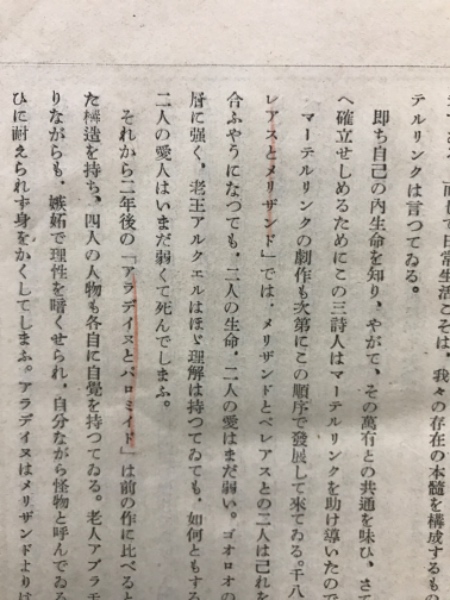 而して日常生活こそは、我々の存在の本髓を構成するもの
テルリンクは言つてゐる。
卽ち自己の內生命を知り、やがて、その萬有との共通を味ひ、さて
へ確立せしめるためにこの三詩人はマーテルリンクを助け導いたので
マーテルリンクの劇作も次第にこの順序で發展して來てゐる。千八
レアスとメリザンド」では、メリザンドとペレアスとの二人は己れを
合ふやうになつても、二人の生命、二人の愛はまだ弱い。ゴオロオの
層に强く、老王アルクエルはほゞ理解は持つてゐても、如何ともする
二人の愛人はいまだ弱くて死んでしまふ。
それから二年後の「アラデイヌとパロミイド」は前の作に比べると
た構造を持ち、四人の人物も各自に自覺を持つてゐる。老人アブラモ
りながらも、嫉妬で理性を暗くせられ、自分ながら怪物と呼んでゐる
ひに耐えられず身をかくしてしまふ。アラデイヌはメリザンドよりは